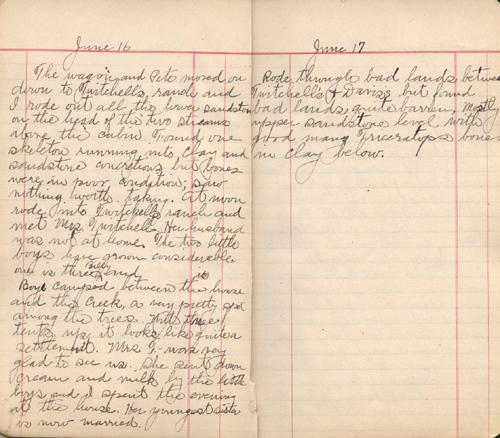 June 16
The wagon and Pete moved on
down to Twitchell's ranch and
I rode out all the lower sandstone
on the head of the two streams
above the cabin. Found one
skeleton running into clay and
sandstone concretions but bones
were in poor condition; saw
nothing worth taking. At noon
rode into Twitchell's ranch and
met Mrs. Twitchell. Her husband
was not at home. The two little
boys have grown considerable
one is three Billy and is
Boys camped between the house
and the Creek, a very pretty spot
among the trees. With three
tents up it looks like quite a
settlement. Mrs T- was very
glad to see us. She sent down
cream and milk by the little
boys and I spent the evening
at the house. Her youngest sister
is now married.
June 17
Rode through bad lands between
Twitchell's & Davis's but found
bad lands quite barren, Mostly
upper sandstone level with
good many Triceratops bones
in clay below.